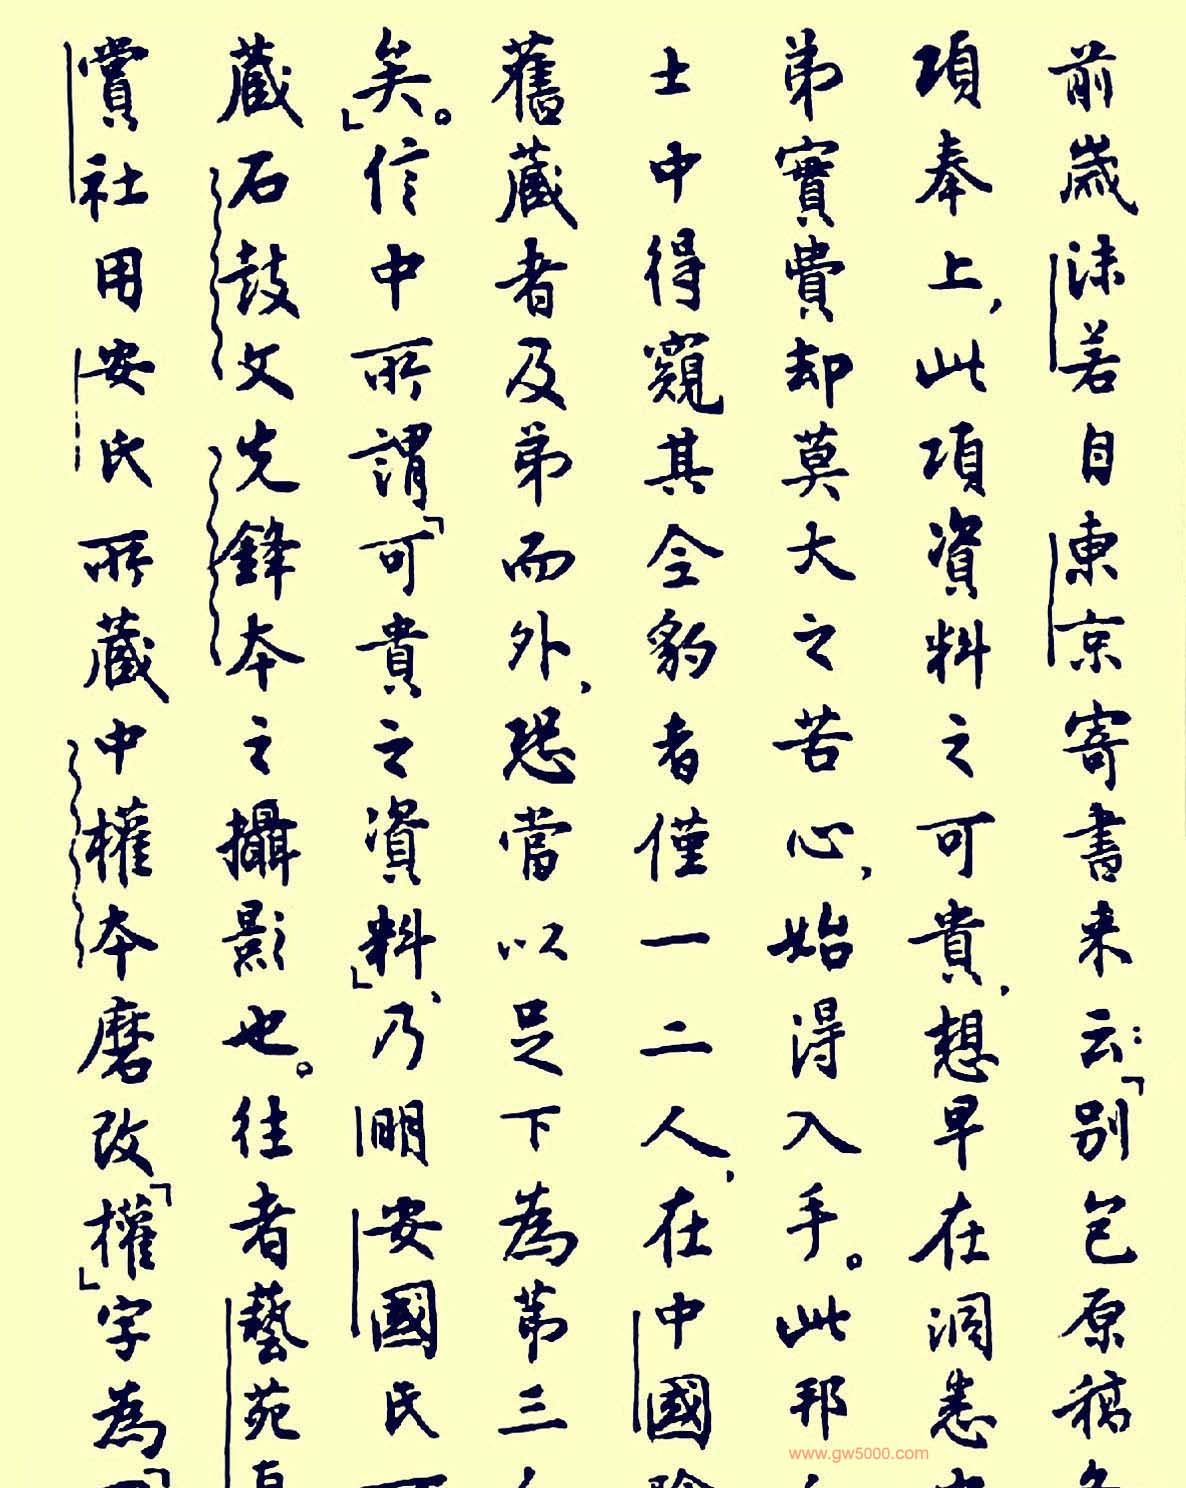 前歲沫若自東京寄書来云：「別包原稿
項奉上，此項資料之可貴，想早在洞悉
弟實費却莫大之苦心，始得入手。此邦
士中得窺其全豹者僅一二人，在中國
舊藏者及弟而外，恐當以足下為第三
矣。」信中所謂「可貴之資料」，乃明安國氏
藏石鼓文先鋒本之攝影也。往者藝苑
賞社用安氏所藏中權本磨改「權」字為「
www.gw5000.com